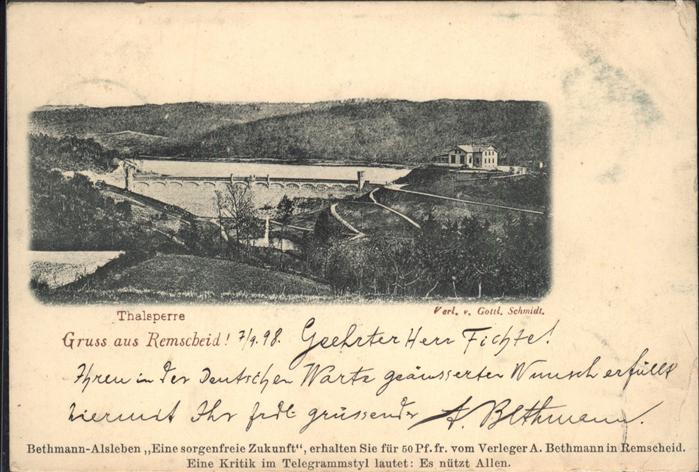 Thalsperre
Verl. v. Gottl. Schmidt.
Gruss aus Remscheid! 7/9. 98. Geehrter Herr Fichte!
Ihren in der Deutschen Warte geäusserten Wunsch erfüllt
hiermit Ihr frdl. grüssender A. Bethmann.
Bethmann-Alsleben „Eine sorgenfreie Zukunft“, erhalten Sie für 50 Pf. fr. vom Verleger A. Bethmann in Remscheid.
Eine Kritik im Telegrammstyl lautet: Es nützt Allen.